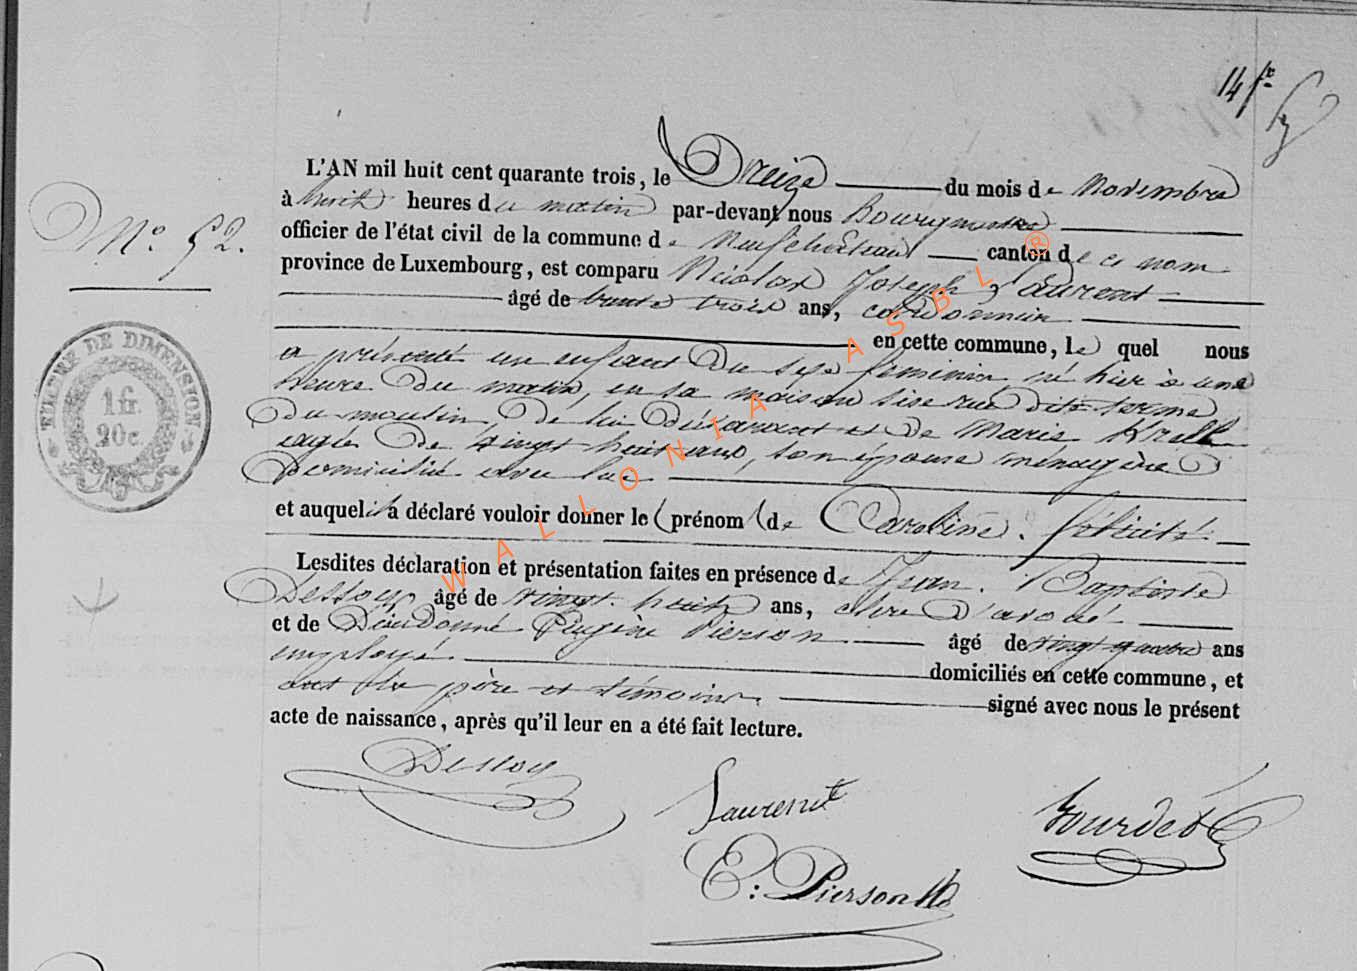 14 fr
N.° 52.
TIMBRE DE DIMENSION
1 fr.
20 c.
L'AN mil huit cent quarante trois, le Treize du mois de Novembre
à huit heures du matin par-devant nous Bourgmestre
officier de l'état civil de la commune de Neufchâteau canton de ce nom
province de Luxembourg, est comparu Nicolas Joseph Laurent
âgé de trente trois ans, cordonnier
en cette commune, lequel nous
a présenté un enfant du sexe feminin né hier à une
heure du matin, en sa maison sise rue dite terme
du moulin, de lui déclarant et de Marie
agée de vingt huit ans, son épouse ménagère
domiciliée avec lui
et auquel il a déclaré vouloir donner le (prénom) de Caroline. félicité.
Lesdites déclaration et présentation faites en présence de Jean. Baptiste
Dessoy âgé de vingt. huit ans, clerc d'avoué.
et de Dieudonné Eugène Pierson âgé de vingt quatre ans
employé domiciliés en cette commune, et
ont les père et témoins signé avec nous le présent
acte de naissance, après qu'il leur en a été fait lecture.
Dessoy
Laurent
E: Pierson
WALLONIA ASBL ®